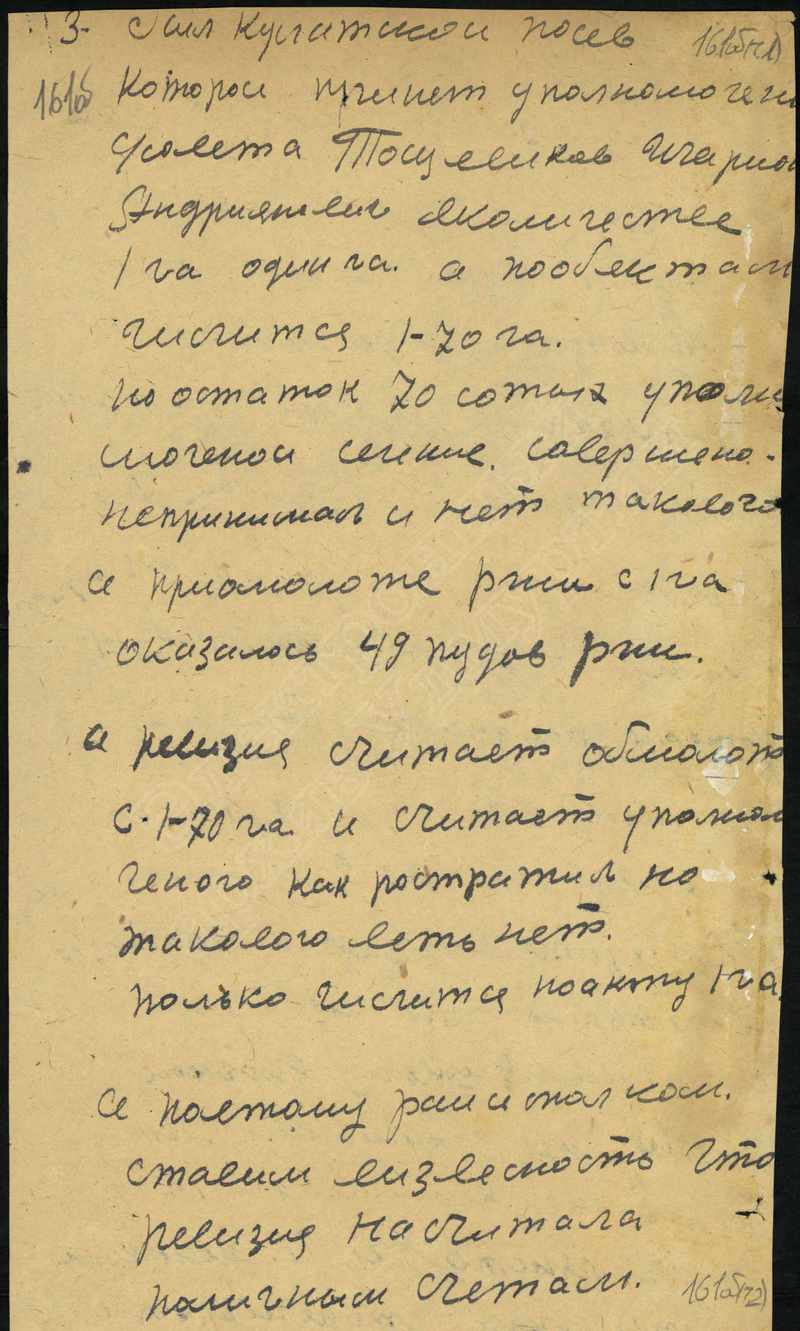 3- посев 161об(ч1)
161об которой примет уполномочен
совета
Андриянович вколичестве
1 га один га. а пообектам
числится 1-70 га.
но остаток 70 сотых уполн
моченой совершено-
непринимал и нет такового
и приомолоте ржи с 1 га
оказалось 49 пудов ржи.
а ревизия считает обмолот
с. 1-70 га. и считает уполном
ченого как ростратил но
такового есть нет.
только числится поакту 1 га.
и поетому райисполком.
ставим визвесность что
ревизия насчитала
поличным счетам. 161об(ч2)